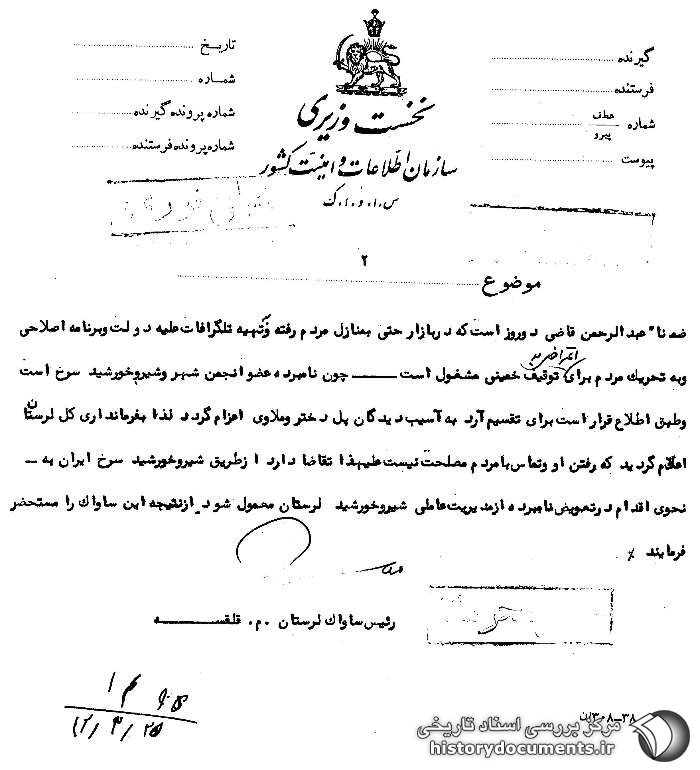 گیرنده
فرستنده
شماره عطف
پیرو
پیوست
تاریخ
شماره
شماره پرونده گیرنده
شماره پرونده فرستنده
نخست وزیری
سازمان اطلاعات و امنیت کشور
س.ا.و.ا.ک
۲
موضوع
ضمنا" عبدالرحمن قاضی دوروز است که دربازار حتی بمنازل مردم رفته وتهیه تلگرافات علیه دولت وبرنامه اصلاحی
وبه تحریک مردم برای اعتراض به توقیف خمینی مشغول است ـــ چون نامبرده عضو انجمن شهر وشیروخورشید سرخ است
وطبق اطلاع قرار است برای تقسیم آرد به آسیب دیدگان پل دختر وملاوی اعزام گردد لذا بفرمانداری کل لرستان
اعلام گردید که رفتن او وتماس با مردم مصلحت نیست علیهذا تقاضا دارد ازطریق شیروخورشید سرخ ایران به ـ
نحوی اقدام درتعویض نامبرده ازمدیریت عاملی شیروخورشید لرستان معمول شود ازنتیجه این ساواک را مستحضر
فرمایند ٪
رئیس ساواک لرستان .م. قلقسه
۱۲/۳/۲۵
۳۸-۸
مرکز بررسی اسناد تاریخی
historydocuments.ir